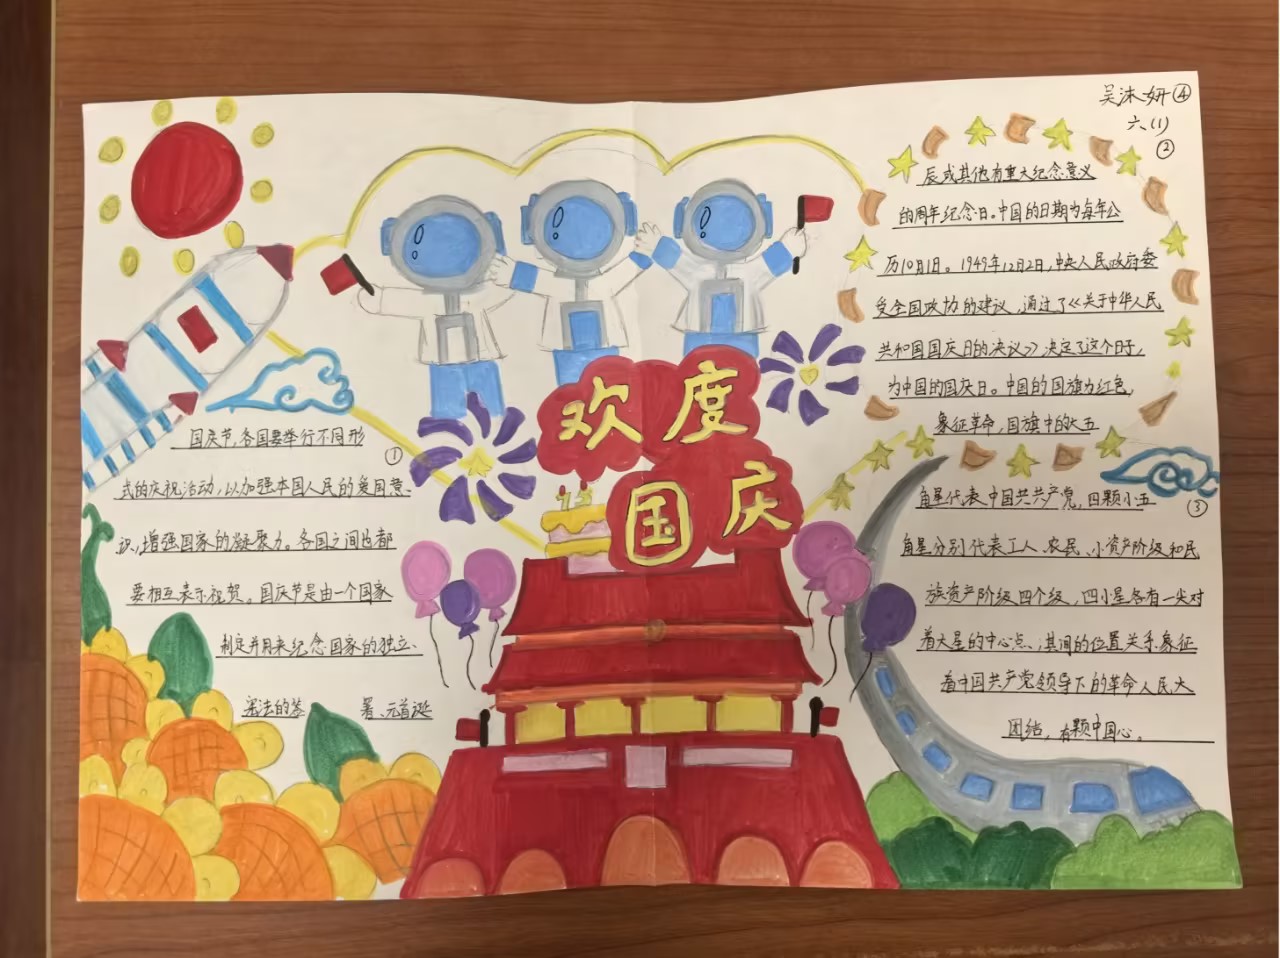 吴沐妍④
六、(1)
欢度
国庆
①
国庆节,各国要举行不同形
式的庆祝活动,以加强本国人民的爱国意、
识,增强国家的凝聚力。各国之间也都
要相互表示祝贺。国庆节是由一个国家
制定并用来纪念国家的独立、
宪法的签 署、元首诞
②
辰或其他有重大纪念意义
的周年纪念日。中国的日期为每年公
历10月1日。1949年12月2日,中央人民政府委
受全国政协的建议,通过了《关于中华人民
共和国国庆日的决议》决定了这个日子,
为中国的国庆日。中国的国旗为红色,
象征革命,国旗中的大五
③
角星代表中国共产党,四颗小五
角星分别代表工人、农民、小资产阶级和民
族资产阶级四个级,四小星各有一尖对
着大星的中心点、,其间的位置关系象征
着中国共产党领导下的革命人民大
团结,有颗中国心。